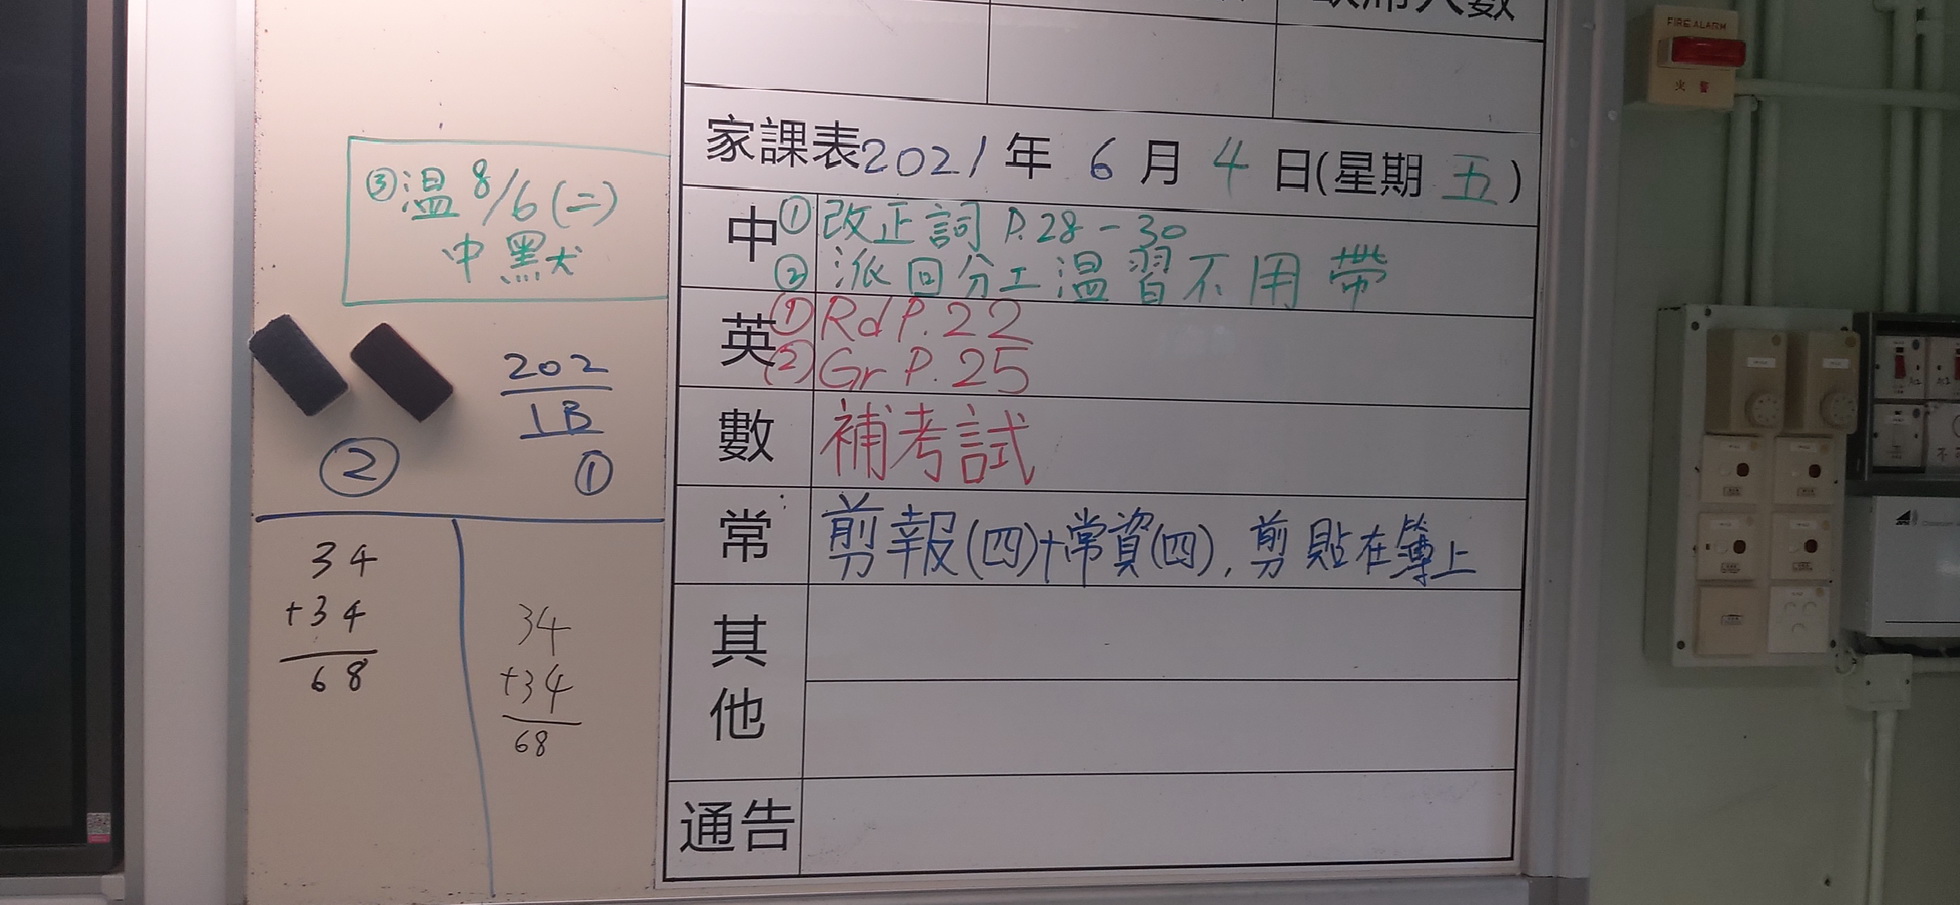 席人數
家課表2021年 6 月 4 日(星期 五)
中 ① 改正詞 P.28-30
② 派回分工溫習不用帶
英 (1) Rd P.22
(2) Gr P.25
數 補考試
常 剪報(四)+常資(四), 剪貼在簿上
其他
通告
③溫 8/6(二)
中黑犬
202
1B
①
②
34
+34
68
34
+34
68
FIRE ALARM
火警